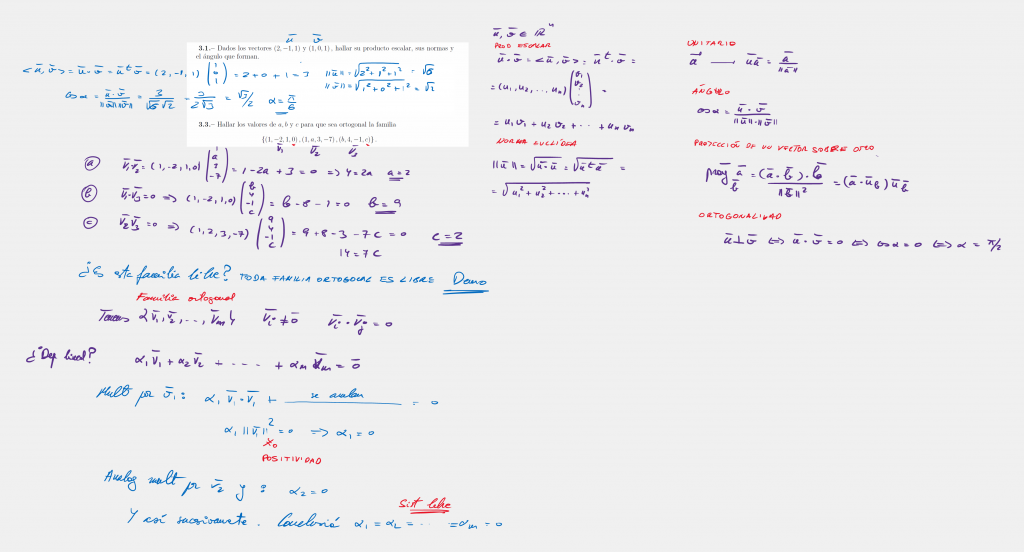 ū v̄
3.1.– Dados los vectores (2,−1,1) y (1,0,1), hallar su producto escalar, sus normas y
el ángulo que forman.
<ū,v̄> = ū·v̄ = ū^t v̄ = (2,-1,1) (1 0 1) = 2+0+1 = 3
||ū|| = √(2²+1²+1²) = √6
||v̄|| = √(1²+0²+1²) = √2
cos α = ū·v̄ / ||ū||||v̄|| = 3/(√6√2) = 3/(2√3) = √3/2 α = π/6
3.3.– Hallar los valores de a, b y c para que sea ortogonal la familia
{(1,−2,1,0), (1,a,3,−7), (b,4,−1,c)}.
v̄1 v̄2 v̄3
(a) v̄1v̄2 = (1,-2,1,0) (1 a 3 -7) = 1-2a+3 = 0 => 4=2a a=2
(b) v̄1·v̄3=0 => (1,-2,1,0) (b 4 -1 c) = b-8-1=0 b=9
(c) v̄2v̄3=0 => (1,2,3,-7) (9 4 -1 c) = 9+8-3-7c=0 c=2
14=7c
¿Es esta familia libre? TODA FAMILIA ORTOGONAL ES LIBRE Demo
Familia ortogonal
Tenemos {v̄1, v̄2, ..., v̄m} v̄i ≠ 0̄ v̄i·v̄j = 0
¿Dep lineal? α1v̄1 + α2v̄2 + ---- + αm v̄m = 0̄
Mult por v̄1: α1 v̄1·v̄1 + se anulan = 0
α1 ||v̄1||² = 0 => α1 = 0
≠0
POSITIVIDAD
Analog mult por v̄2 y : α2=0
Sist libre
Y así sucesivamente. Conclusión α1 = α2 = ---- = αm = 0
ū, v̄ ∈ ℝⁿ
PROD ESCALAR
ū·v̄ = <ū,v̄> = ū^t·v̄ =
= (u1, u2, ... un) (v1 v2 : vn) =
= u1v1 + u2v2 + ··· + unvn
NORMA EUCLÍDEA
||ū|| = √(ū·ū) = √(ū^t ū) =
= √(u1²+u2²+···+un²)
UNITARIO
ā → ūā = ā/||ā||
ÁNGULO
cos α = ū·v̄ / ||ū||·||v̄||
PROYECCIÓN DE UN VECTOR SOBRE OTRO
proy b̄ ā = (ā·b̄)·b̄ / ||b̄||² = (ā·ūb) ūb̄
ORTOGONALIDAD
ū⊥v̄ <=> ū·v̄=0 <=> cos α=0 <=> α = π/2